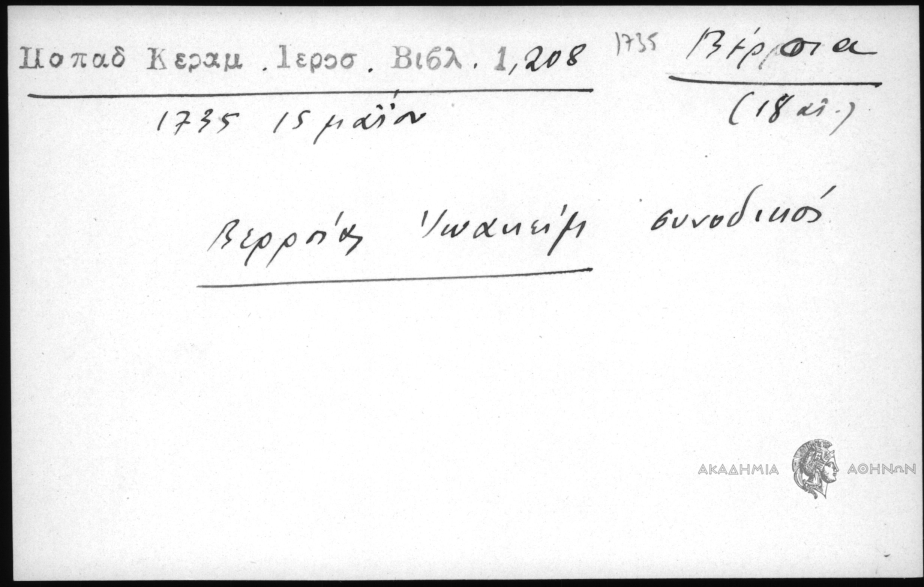 Παπαδ Κεραμ. Ιεροσ. Βιβλ. 1,208 1735 Βέρροια
1735 15 μαΐου (18 αι.)
Βερροίας Ἰωακείμ συνοδικός
ΑΚΑΔΗΜΙΑ ΑΘΗΝΩΝ